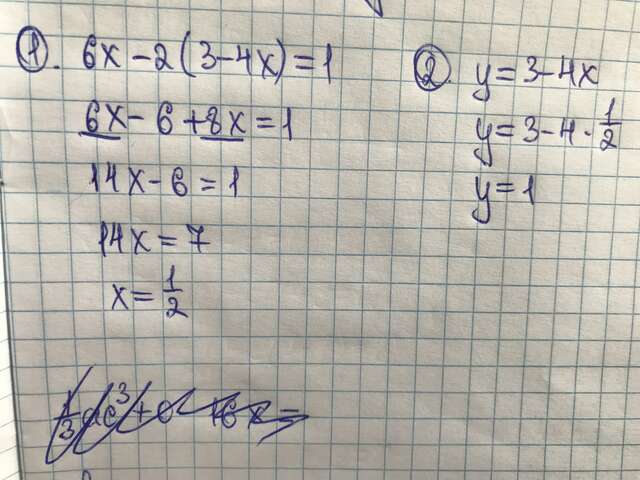 1. 6x - 2(3-4x) = 1
6x - 6 + 8x = 1
14x - 6 = 1
14x = 7
x = 1/2
2 y = 3-4x
y = 3-4·1/2
y = 1